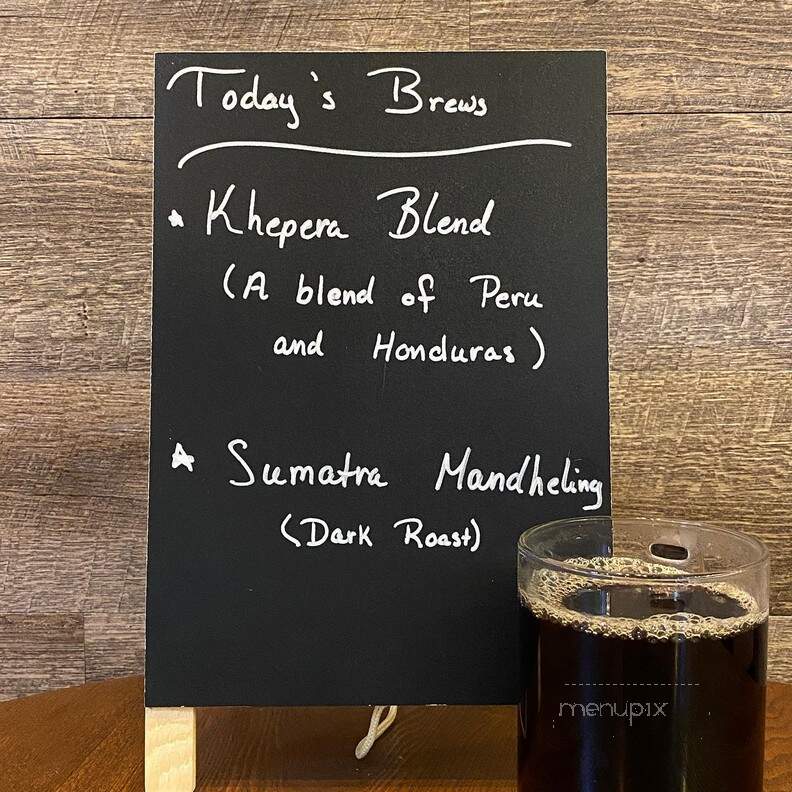 Today's Brews
Khepera Blend
(A blend of Peru
and Honduras)
Sumatra Mandheling
(Dark Roast)
menupix